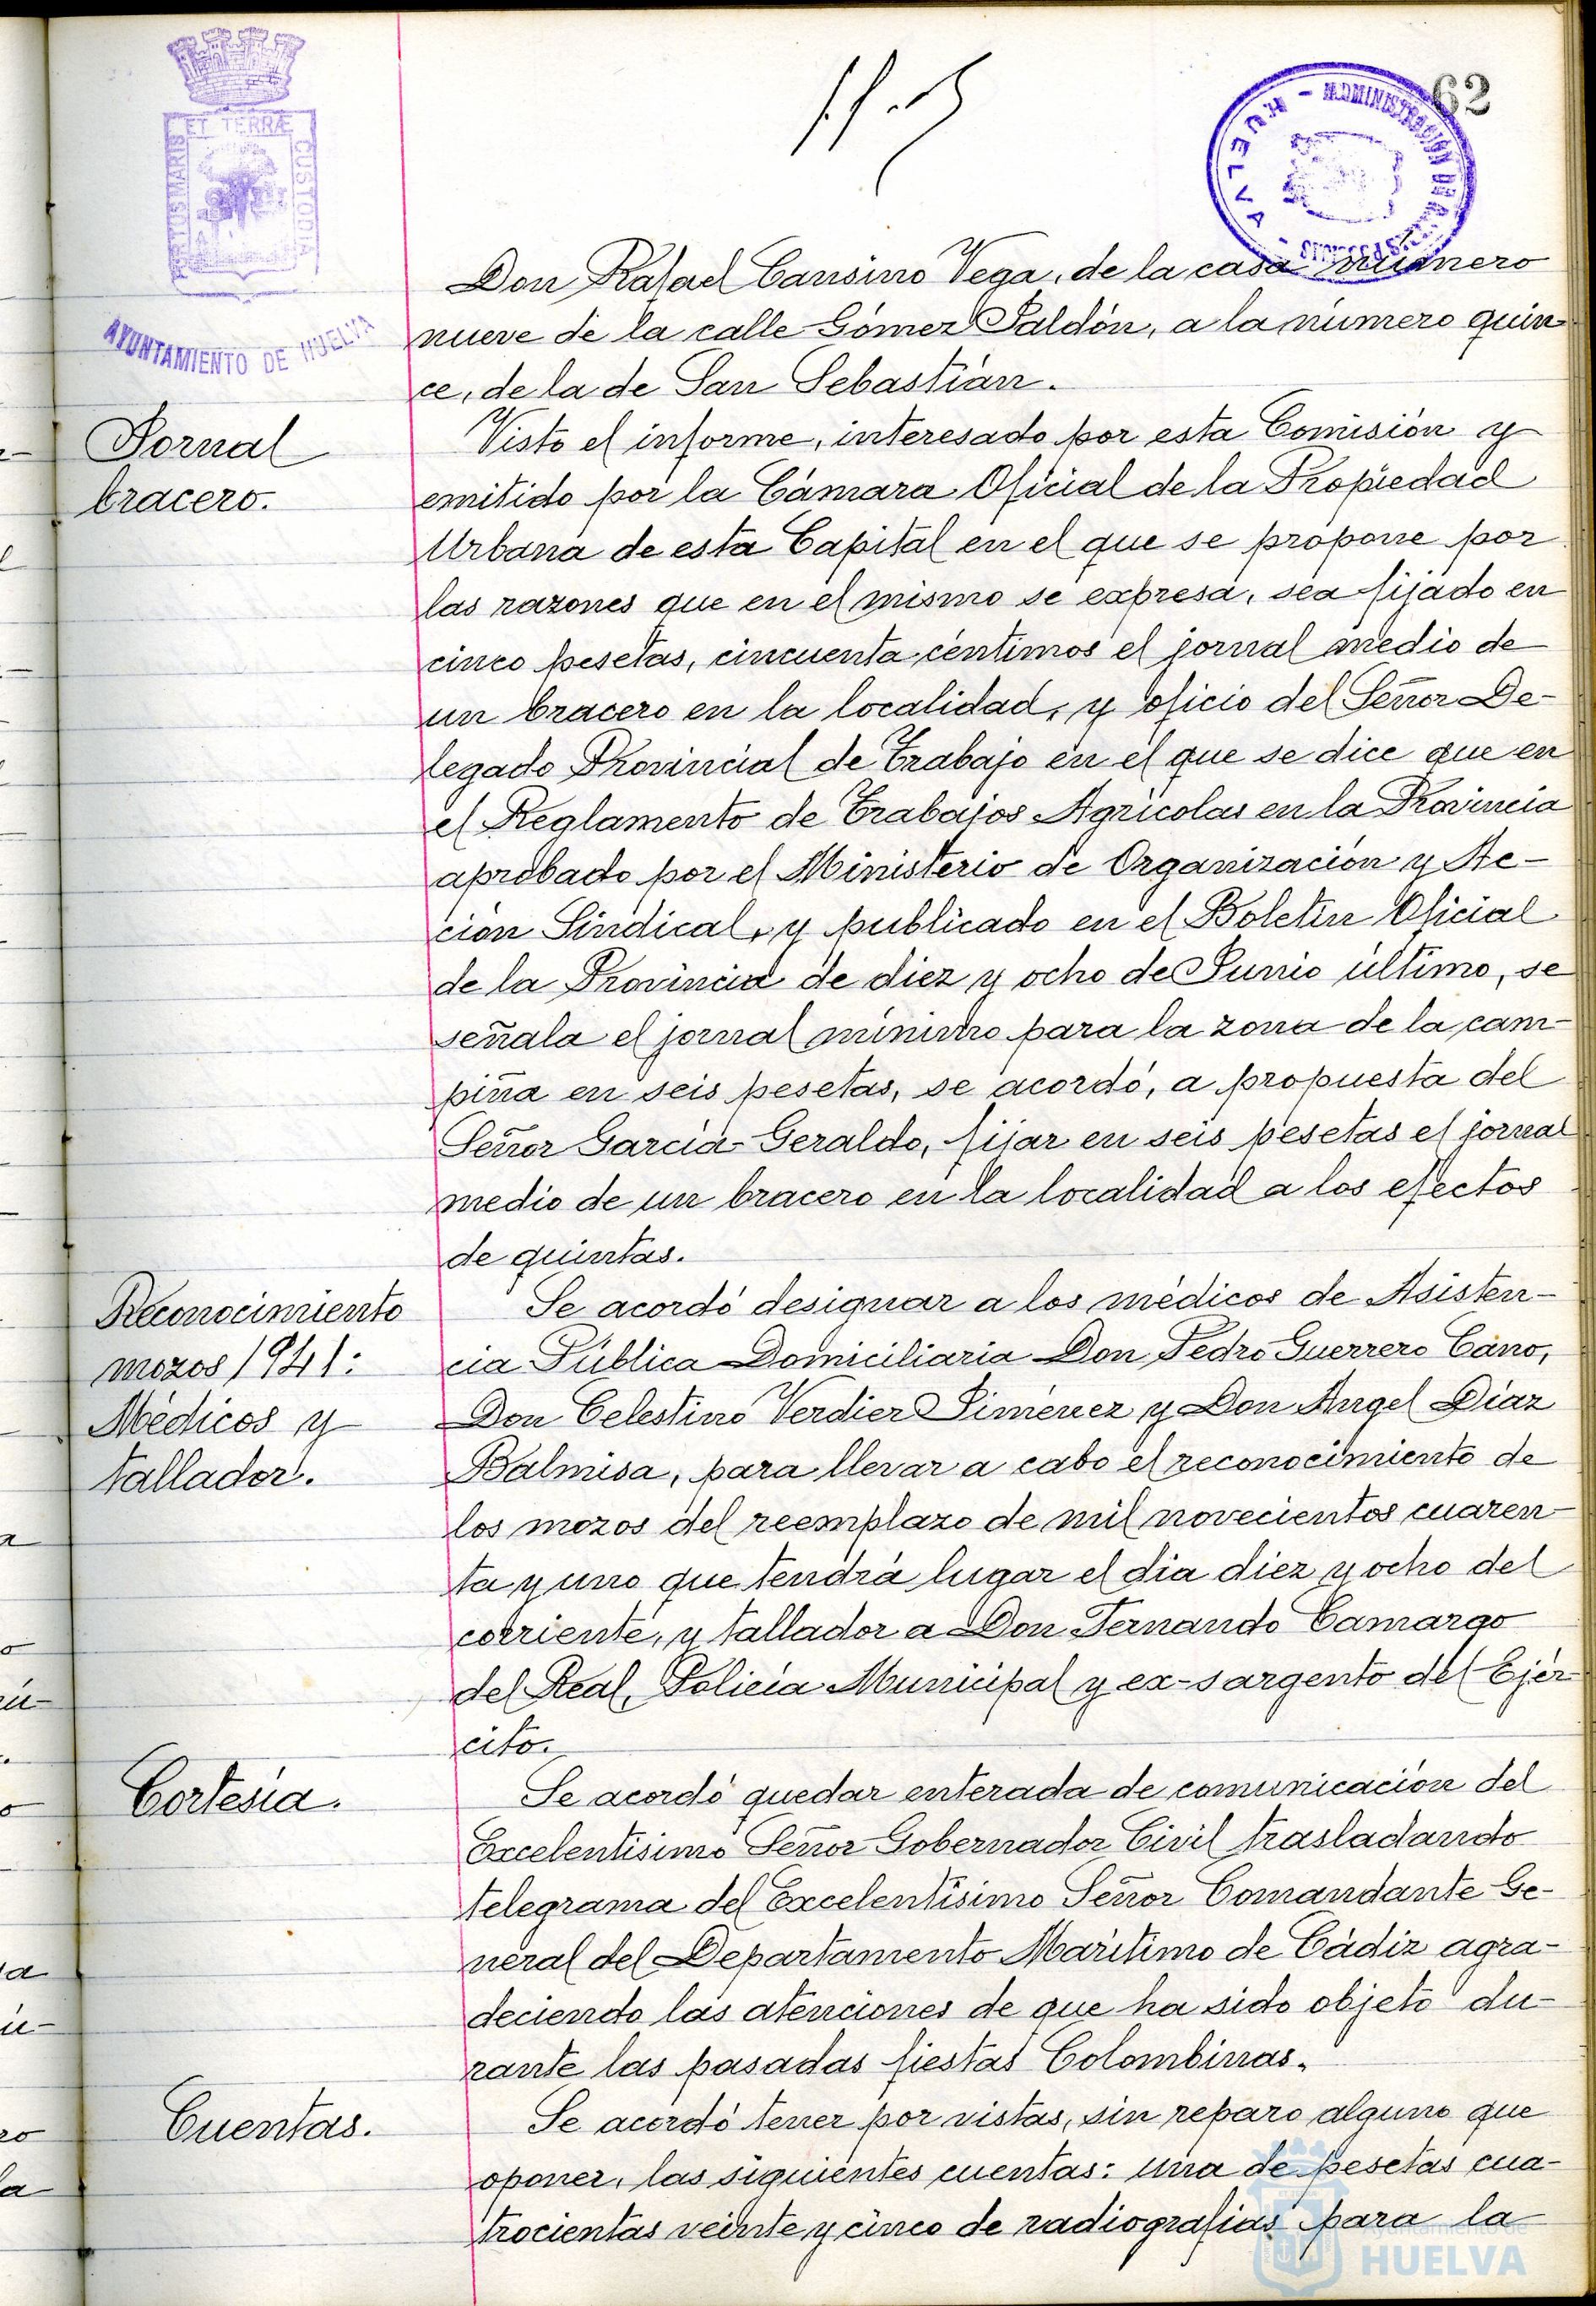 62
PORTUS MARIS
ET TERRÆ
CUSTODIA
AYUNTAMIENTO DE HUELVA
HUELVA - ADMINISTRACION DE
Don Rafael Cansino Vega, de la casa número
nueve de la calle Gómez Jaldón, a la número quin-
ce, de la de San Sebastián.
Jornal
bracero.
Visto el informe, interesado por esta Comisión y
emitido por la Cámara Oficial de la Propiedad
Urbana de esta Capital en el que se propone por
las razones que en el mismo se expresa, sea fijado en
cinco pesetas, cincuenta céntimos el jornal medio de
un bracero en la localidad, y oficio del Señor De-
legado Provincial de Trabajo en el que se dice que en
el Reglamento de Trabajos Agrícolas en la Provincia
aprobado por el Ministerio de Organización y Ac-
ción Sindical, y publicado en el Boletín Oficial
de la Provincia de diez y ocho de Junio último, se
señala el jornal mínimo para la zona de la cam-
piña en seis pesetas, se acordó, a propuesta del
Señor García-Geraldo, fijar en seis pesetas el jornal
medio de un bracero en la localidad a los efectos
de quintas.
Reconocimiento
mozos 1941:
Médicos y
tallador.
Se acordó designar a los médicos de Asisten-
cia Pública Domiciliaria Don Pedro Guerrero Cano,
Don Celestino Verdier Jiménez y Don Angel Díaz
Balmisa, para llevar a cabo el reconocimiento de
los mozos del reemplazo de mil novecientos cuaren-
ta y uno que tendrá lugar el día diez y ocho del
corriente, y tallador a Don Fernando Camargo
del Real, Policía Municipal y ex-sargento del Ejér-
cito.
Cortesía.
Se acordó quedar enterada de comunicación del
Excelentísimo Señor Gobernador Civil trasladando
telegrama del Excelentísimo Señor Comandante Ge-
neral del Departamento Marítimo de Cádiz agra-
deciendo las atenciones de que ha sido objeto du-
rante las pasadas fiestas Colombinas.
Cuentas.
Se acordó tener por vistas, sin reparo alguno que
oponer, las siguientes cuentas: una de pesetas cua-
trocientas veinte y cinco de radiografías para la
Ayuntamiento de
HUELVA